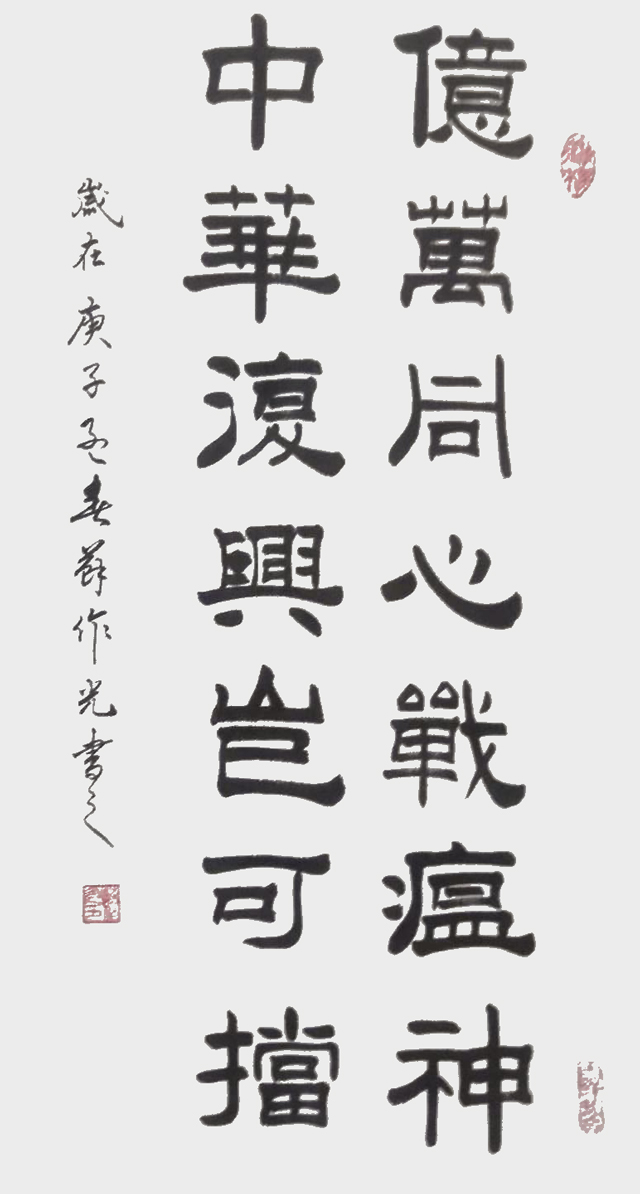 億萬同心戰瘟神
中華復興豈可擋
歲在庚子孟春薛作光書之